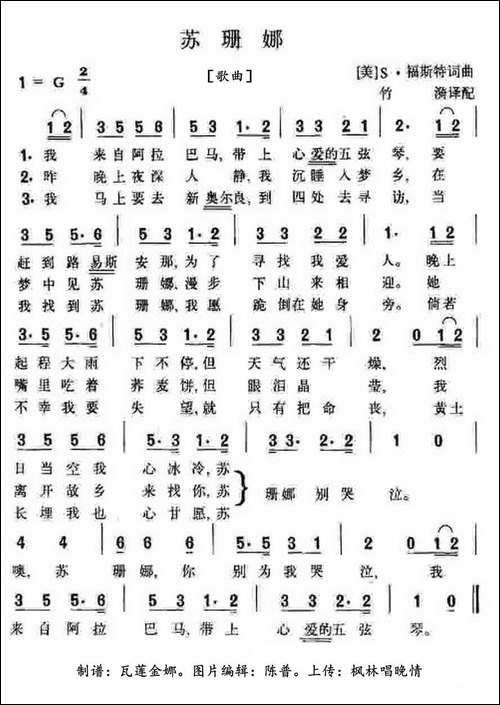 苏珊娜
1=G 2/4 [歌曲] [美]S·福斯特词曲
竹 漪译配
1 2 | 3 5 5 6 | 5·3 1·2 | 3 3 2 1 | 2· 1 2 |
1.我 来自阿拉 巴马,带上 心爱的五弦 琴,要
2.昨 晚上夜深人 静,我沉睡入梦乡,在
3.我 马上要去 新奥尔良,到四处去寻访,当
3 5 5·6 | 5·3 1·2 | 3 3 2 2 | 1· 1 2 |
赶到路易斯 安那,为了 寻找我爱 人。晚上
梦中见苏 珊娜,漫步 下山来相 迎。她
我找到苏 珊娜,我愿 跪倒在她身 旁。倘若
3·5 5·6 | 5·3 1·2 | 3 3 2 1 | 2 0 1 2 |
起程大雨 下不停,但 天气还干 燥,烈
嘴里吃着 荞麦饼,但 眼泪晶 莹,我
不幸我要 失望,就 只有把命 丧,黄土
3 5 5 6 | 5·3 1·2 | 3 3·2·2 | 1 0 |
日当空我 心冰冷,苏
离开故乡 来找你,苏 珊娜别哭 泣。
长埋我也 心甘愿,苏
4 4 | 6 6· 6 | 5·5 3 1 | 2 0 1 2 |
噢,苏 珊娜,你 别为我哭 泣,我
3 5 5 6 | 5 3 1·2 | 3 3·2 2 | 1 0 ‖
来自阿拉 巴马,带上 心爱的五弦 琴。
制谱：瓦莲金娜。图片编辑：陈普。上传：枫林唱晚情